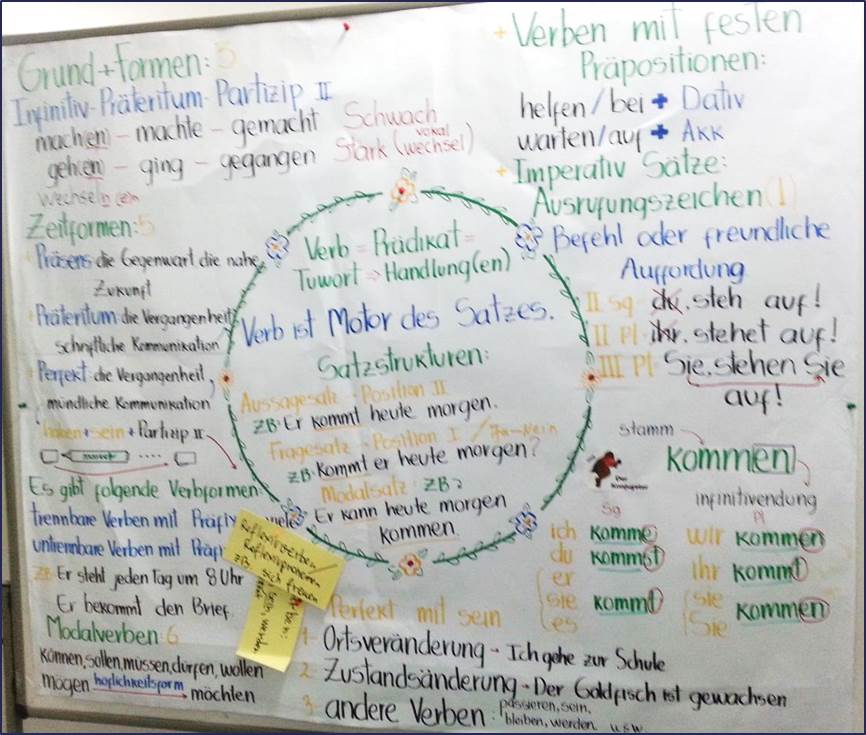 Grund+Formen: 5
Infinitiv-Präteritum-Partizip II
machen – machte – gemacht Schwach
gehen – ging – gegangen Stark (vokal wechsel)
Zeitformen: 5
Präsens die Gegenwart, die nahe
Zukunft
Präteritum: die Vergangenheit
schriftliche Kommunikation
Perfekt: die Vergangenheit,
mündliche Kommunikation
haben + sein + Partizip II
....
Es gibt folgende Verbformen:
trennbare Verben mit Präfix
untrennbare Verben mit
ZB Er steht jeden Tag um 8 Uhr
Er bekommt den Brief.
Modalverben: 6
können, sollen, müssen, dürfen, wollen
mögen höflichkeitsform möchten
Verb = Prädikat =
Tuwort => Handlung(en)
Verb ist Motor des Satzes.
Satzstrukturen:
Aussagesatz - Position II
ZB. Er kommt heute morgen.
Fragesatz - Position I / Ja-Nein
ZB. Kommt er heute morgen?
Modalsatz: ZB:
Er kann heute morgen
kommen
Reflexivverben
Reflexivpronomen
ZB. sich freuen
werden
+ Verben mit festen
Präpositionen:
helfen / bei + Dativ
warten / auf + AKK
+ Imperativ Sätze:
Ausrufungszeichen (!)
Befehl oder freundliche
Auffordung
II Sg du. steh auf!
II Pl ihr. stehet auf!
III Pl Sie. stehen Sie
auf!
stamm
kommen
infinitivendung
Sg
ich komme
du kommst
er
sie kommt
es
Pl
wir kommen
ihr kommt
sie
Sie kommen
Perfekt mit sein
1- Ortsveränderung - Ich gehe zur Schule
2- Zustandsänderung - Der Goldfisch ist gewachsen
3- andere Verben: passieren, sein,
bleiben, werden. usw.